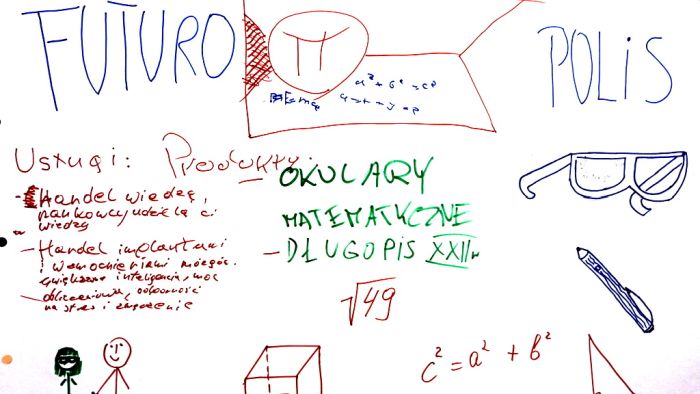 FUTURO
POLIS
π
a² + b² = c²
Usługi: Produkty:
Handel wiedzą,
naukowcy udzielą ci
wiedzy
- Handel implantami
i wzmocnieniami mózgu.
zwiększenie inteligencji, moc
obliczeniowa, odporność
na stres i zmęczenie
- OKULARY
MATEMATYCZNE
- DŁUGOPIS XXII w
√49
c² = a² + b²